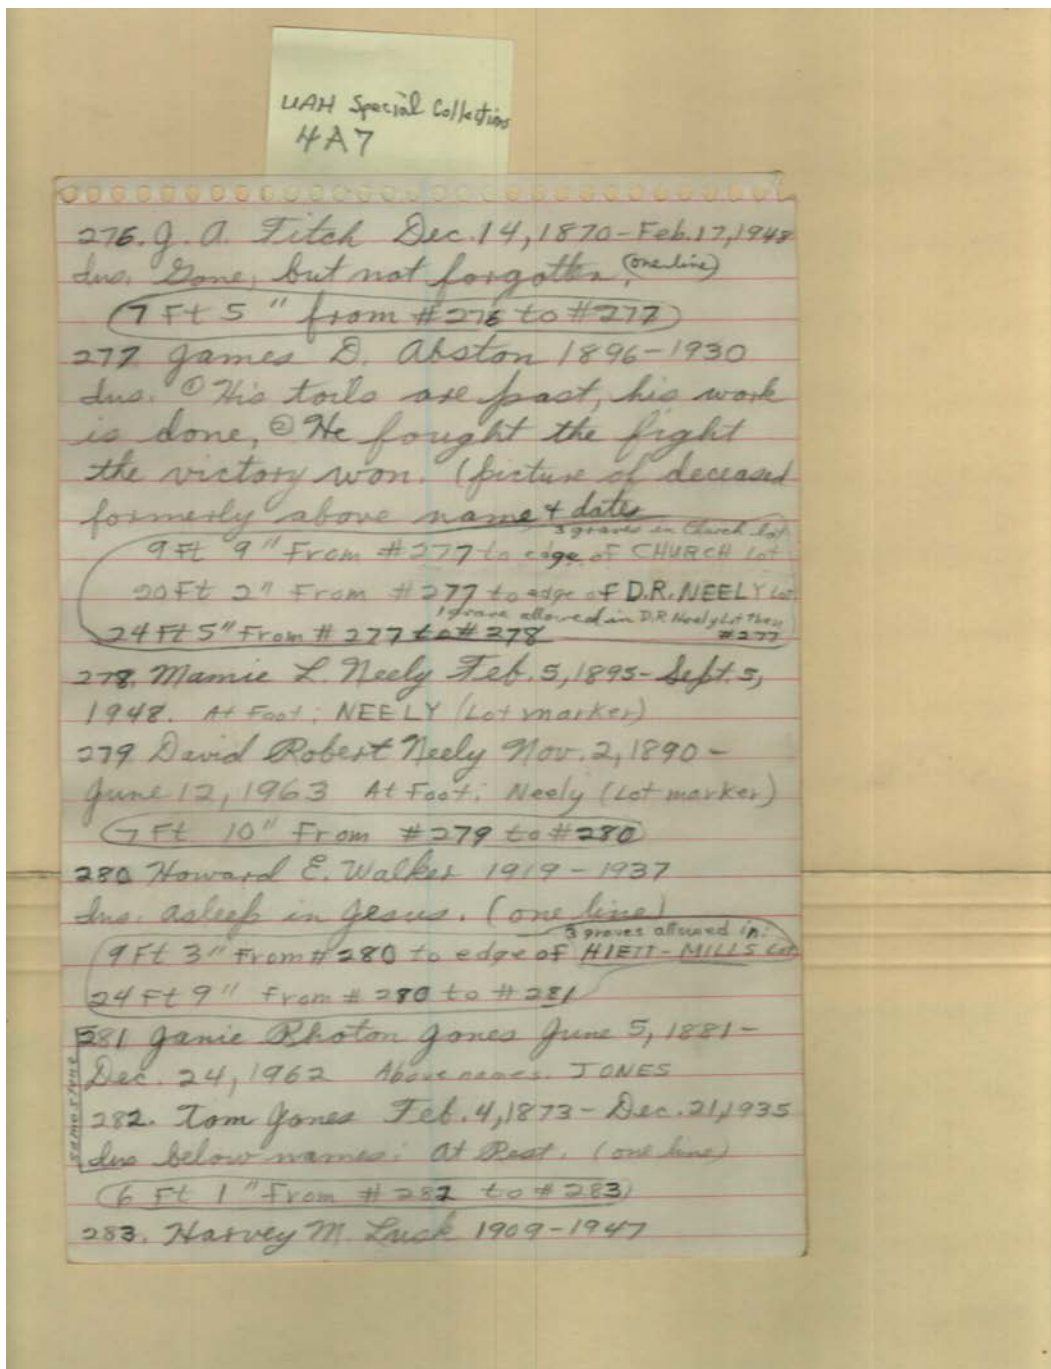 UAH Special Collections
4A7
276. J. A. Fitch Dec. 14, 1870-Feb. 17, 1948
Ins. Gone, but not forgotten. (one line)
7 Ft 5" from #276 to #277
277. James D. Abston 1896-1930
Ins. ① His toils are past, his work
is done, ② He fought the fight
the victory won. (picture of deceased
formerly above name & dates
3 graves in Church lot
9 Ft 9" From #277 to edge of CHURCH Lot
20 Ft 2" From #277 to edge of D.R. NEELY Lot
1 grave allowed in D.R Neely Lot then
#277
24 Ft 5" From #277 to #278
278. Mamie L. Neely Feb. 5, 1895- Sept. 5,
1948. At Foot: NEELY (Lot marker)
279 David Robert Neely Nov. 2, 1890 -
June 12, 1963 At Foot: Neely (Lot marker)
7 Ft 10" From #279 to #280
280 Howard E. Walker 1919-1937
Ins. Asleep in Jesus. (one line)
3 graves allowed in:
9 Ft 3" From #280 to edge of HIETT-MILLS Lot
24 Ft 9" From #280 to #281
same stone
281 Janie Rhoton Jones June 5, 1881-
Dec. 24, 1962 Above names. JONES
282. Tom Jones Feb. 4, 1873- Dec. 21, 1935
Ins below names: At Rest. (one line)
6 Ft 1" From #282 to #283
283. Harvey M. Lusk 1909-1947